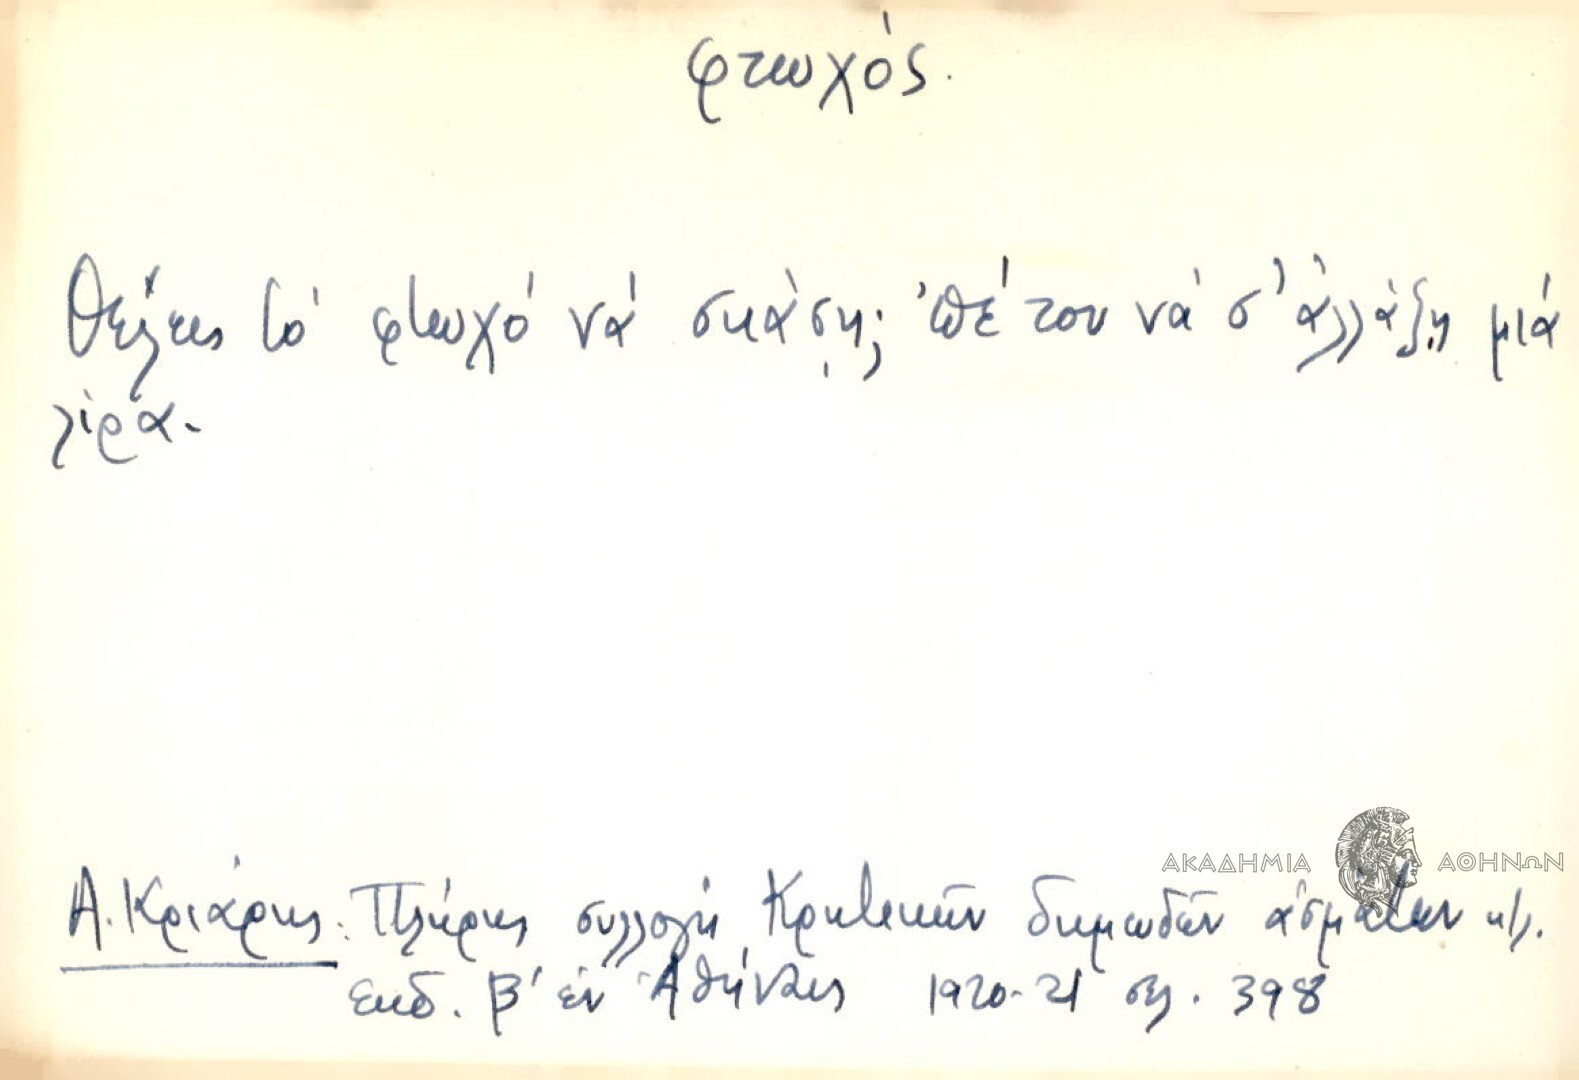 φτωχός.
Θέλεις τό φτωχό νά σκάση; 'πέ του νά σ' ἀλλάξῃ μιά
λίρα.
ΑΚΑΔΗΜΙΑ ΑΘΗΝΩΝ
Α. Κριάρης: Πλήρης συλλογή Κρητικῶν δημωδῶν ἀσμάτων κλ.
ἐκδ. β' ἐν Ἀθήναις 1920-21 σελ. 398